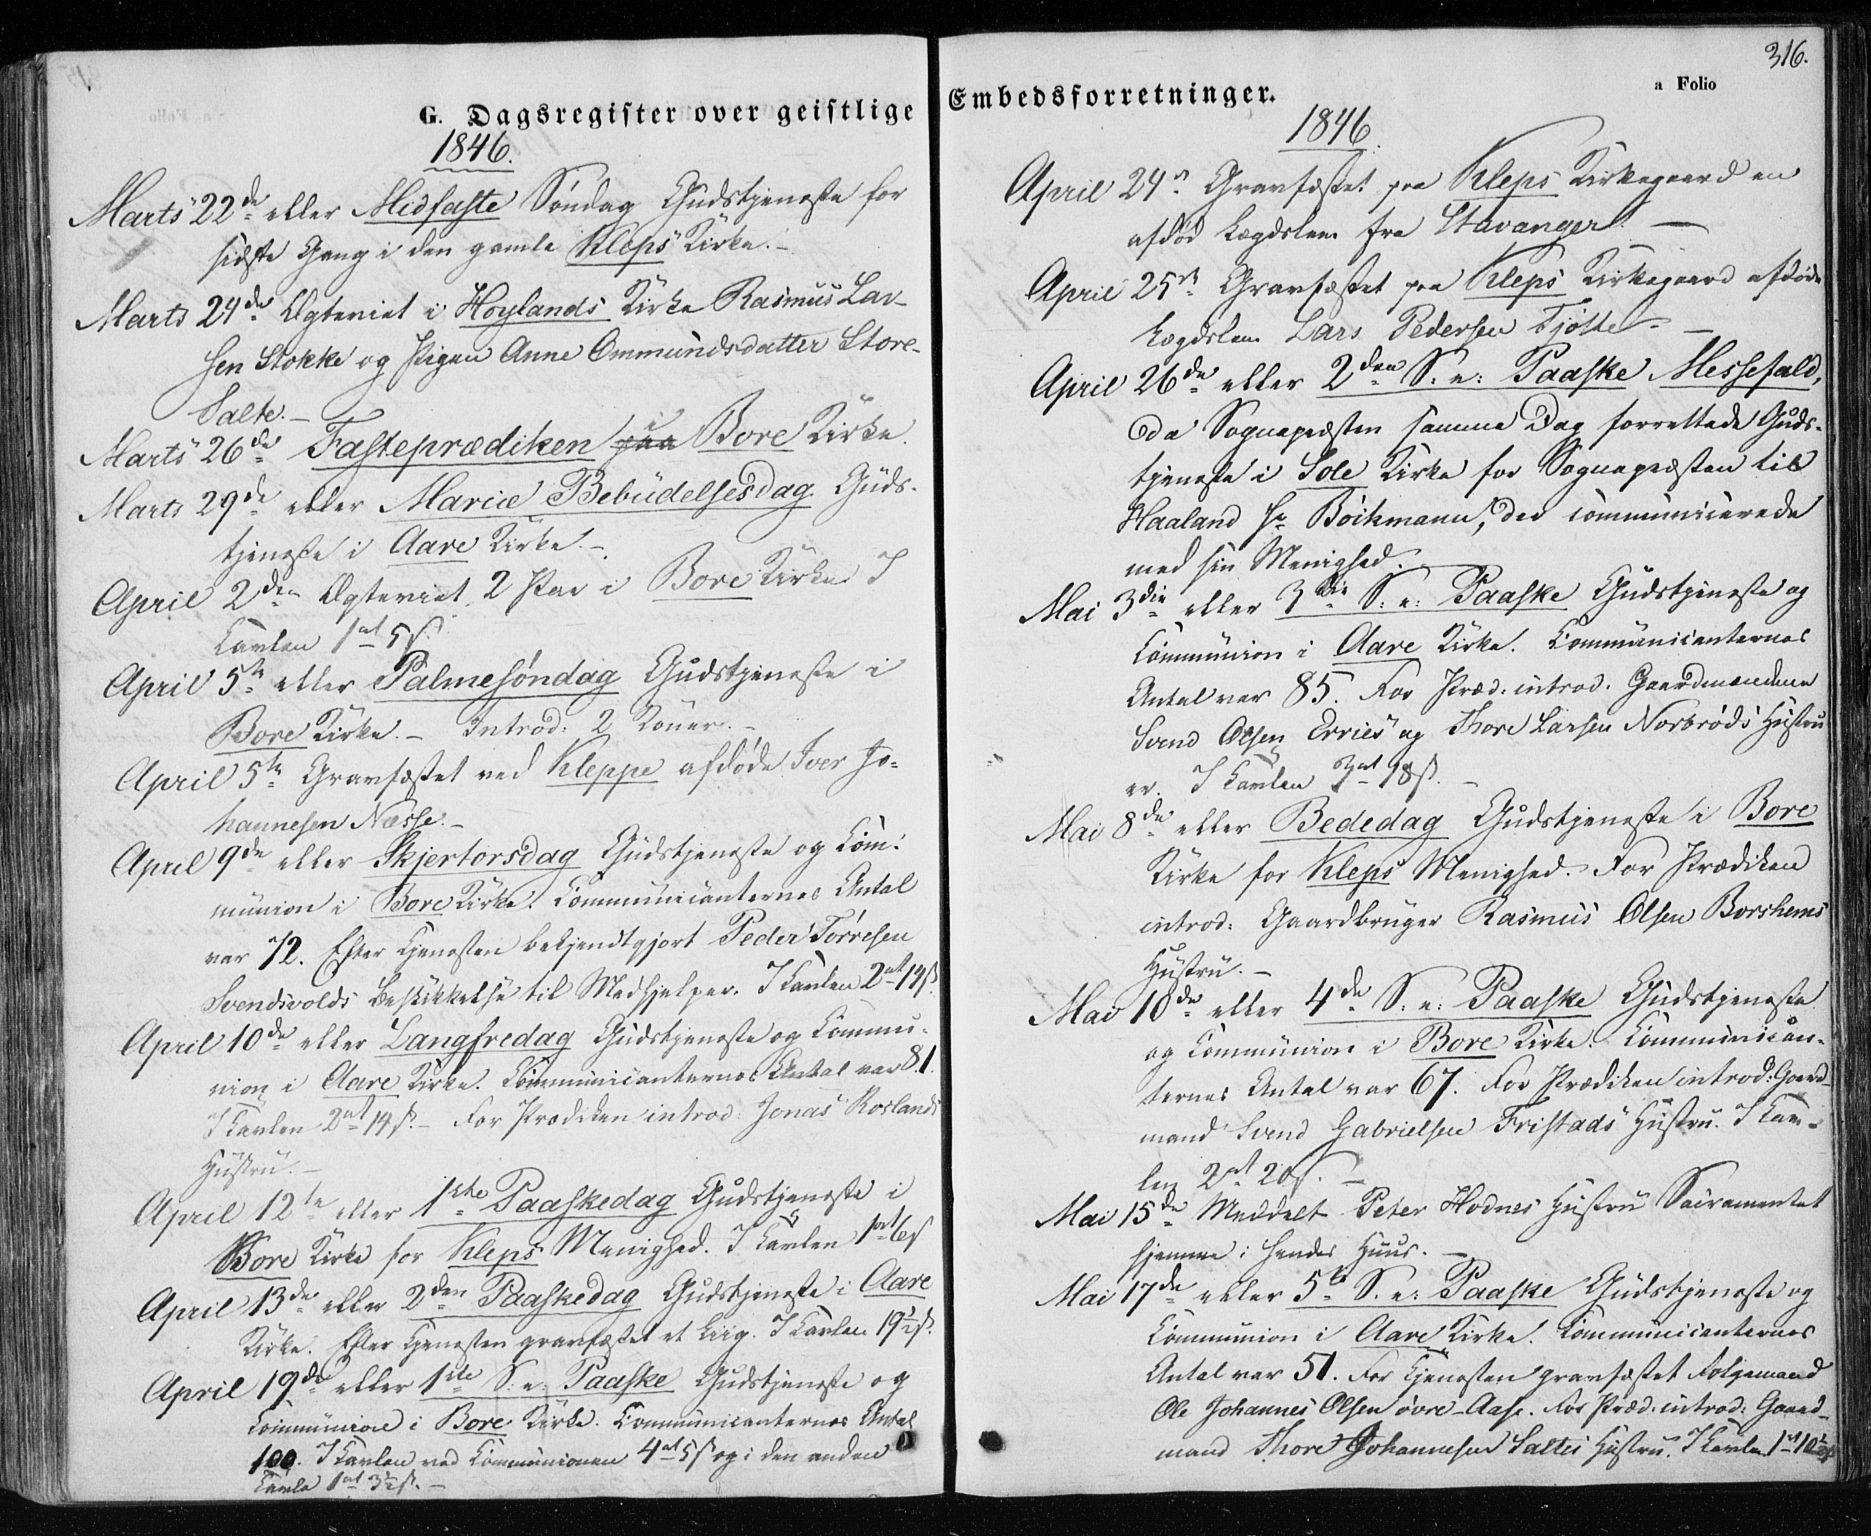 G. Dagsregister over geistlige
1846.
Marts 22de eller Midfaste Søndag Gudstjeneste for
sidste Gang i den gamle Kleps Kirke. –
Marts 24de Ægteviet i Høylands Kirke Rasmus Lar-
sen Stokke og Pigen Anne Ommundsdatter Store-
Salte. –
Marts 26de Fasteprædiken i Bore Kirke.
Marts 29de eller Mariæ Bebudelsesdag Guds-
tjeneste i Aare Kirke. –
April 2den Ægteviet 2 Par i Bore Kirke. I
Tavlen 1 ort 5 s.
April 5te eller Palmesøndag Gudstjeneste i
Bore Kirke. – Introd: 2 Koner. –
April 5te Gravfæstet ved Kleppe afdøde Iver Jo-
hannesen Næsse. –
April 9de eller Skjertorsdag Gudstjeneste og Com-
munion i Bore Kirke. Communicanternes Antal
var 72. Efter Tjenesten bekjendtgjort Peder Tørresen
Svendsvolds Beskikkelse til Medhjelper. I Tavlen 2 ort 14 s.
April 10de eller Langfredag Gudstjeneste og Commu-
nion i Aare Kirke. Communicanternes Antal var 81.
I Tavlen 2 ort 14 s. – For Prædiken introd: Jonas Roslands
Hustru. –
April 12te eller 1ste Paaskedag Gudstjeneste i
Bore Kirke for Kleps Menighed. I Tavlen 1 ort 6 s
April 13de eller 2den Paaskedag Gudstjeneste i Aare
Kirke. Efter Tjenesten gravfæstet et Liig. I Tavlen 19½ s.
April 19de eller 1ste S. e. Paaske Gudstjeneste og
Communion i Bore Kirke. Communicanternes Antal
100. I Tavlen ved Communionen 4 ort 5 s og i den anden
Tavle 1 ort 3½ s. –
Embedsforretninger.
a Folio
316.
1846.
April 24de Gravfæstet paa Kleps Kirkegaard en
afdød Lægdslem fra Stavanger. –
April 25de Gravfæstet paa Kleps Kirkegaard afdøde
Lægdslem Lars Pedersen Tjøtte. –
April 26de eller 2den S. e. Paaske Messefald,
da Sognepræsten samme Dag forrettede Guds-
tjeneste i Sole Kirke for Sognepræsten til
Haaland Hr Bøckmann, der communicerede
med sin Menighed. –
Mai 3die eller 3die S. e. Paaske Gudstjeneste og
Communion i Aare Kirke. Communicanternes
Antal var 85. For Præd. introd. Gaardmændene
Svend Olsen Ervies og Thore Larsen Norbrøds Hustru-
er. I Tavlen 3 ort 18 s. –
Mai 8de eller Bededag Gudstjeneste i Bore
Kirke for Kleps Menighed. For Prædiken
introd: Gaardbruger Rasmus Olsen Borshems
Hustru. –
Mai 10de eller 4de S. e. Paaske Gudstjeneste
og Communion i Bore Kirke. Communican-
ternes Antal var 67. For Prædiken introd: Gaard-
mand Svend Gabrielsen Fristads Hustru. I Tav-
len 2 ort 20 s. –
Mai 15de Meddelt Peter Hodnes Hustru Sacramentet
hjemme i hendes Huus. –
Mai 17de eller 5te S. e. Paaske Gudstjeneste og
Communion i Aare Kirke. Communicanternes
Antal var 51. For Tjenesten gravfæstet Følgemand
Ole Johannes Olsen øvre-Aase. For Præd. introd: Gaard-
mand Thore Johannesen Saltes Hustru. I Tavlen 1 ort 10½ s